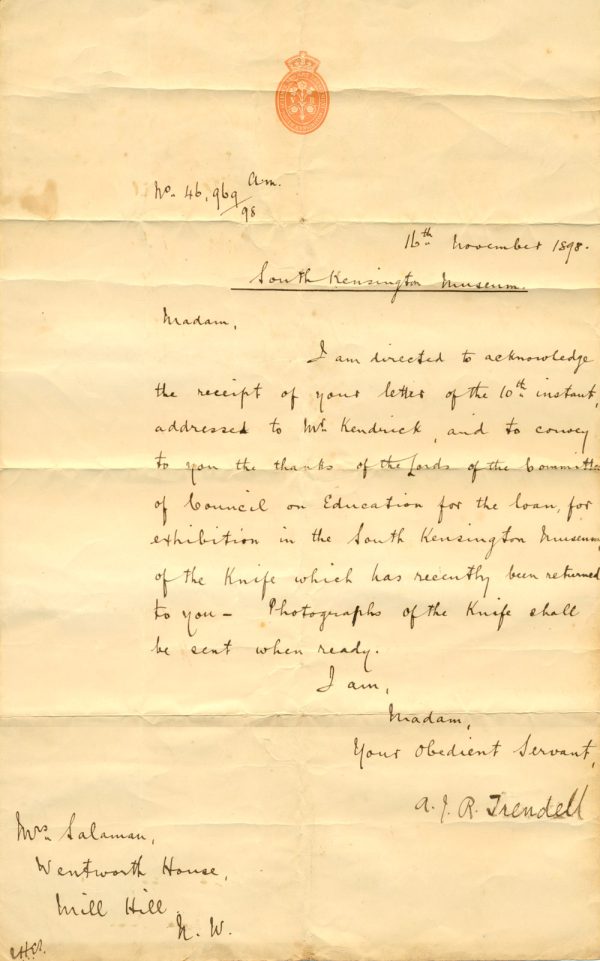 No. 46,969 Am.
98
16th November 1898.
South Kensington Museum.
Madam,
I am directed to acknowledge
the receipt of your letter of the 10th instant,
addressed to Mr. Kendrick, and to convey
to you the thanks of the Lords of the Committee
of Council on Education for the loan, for
exhibition in the South Kensington Museum,
of the Knife which has recently been returned
to you – Photographs of the Knife shall
be sent when ready.
I am,
Madam,
Your Obedient Servant,
A. J. R. Trendell
Mrs. Salaman,
Wentworth House,
Mill Hill
N. W.